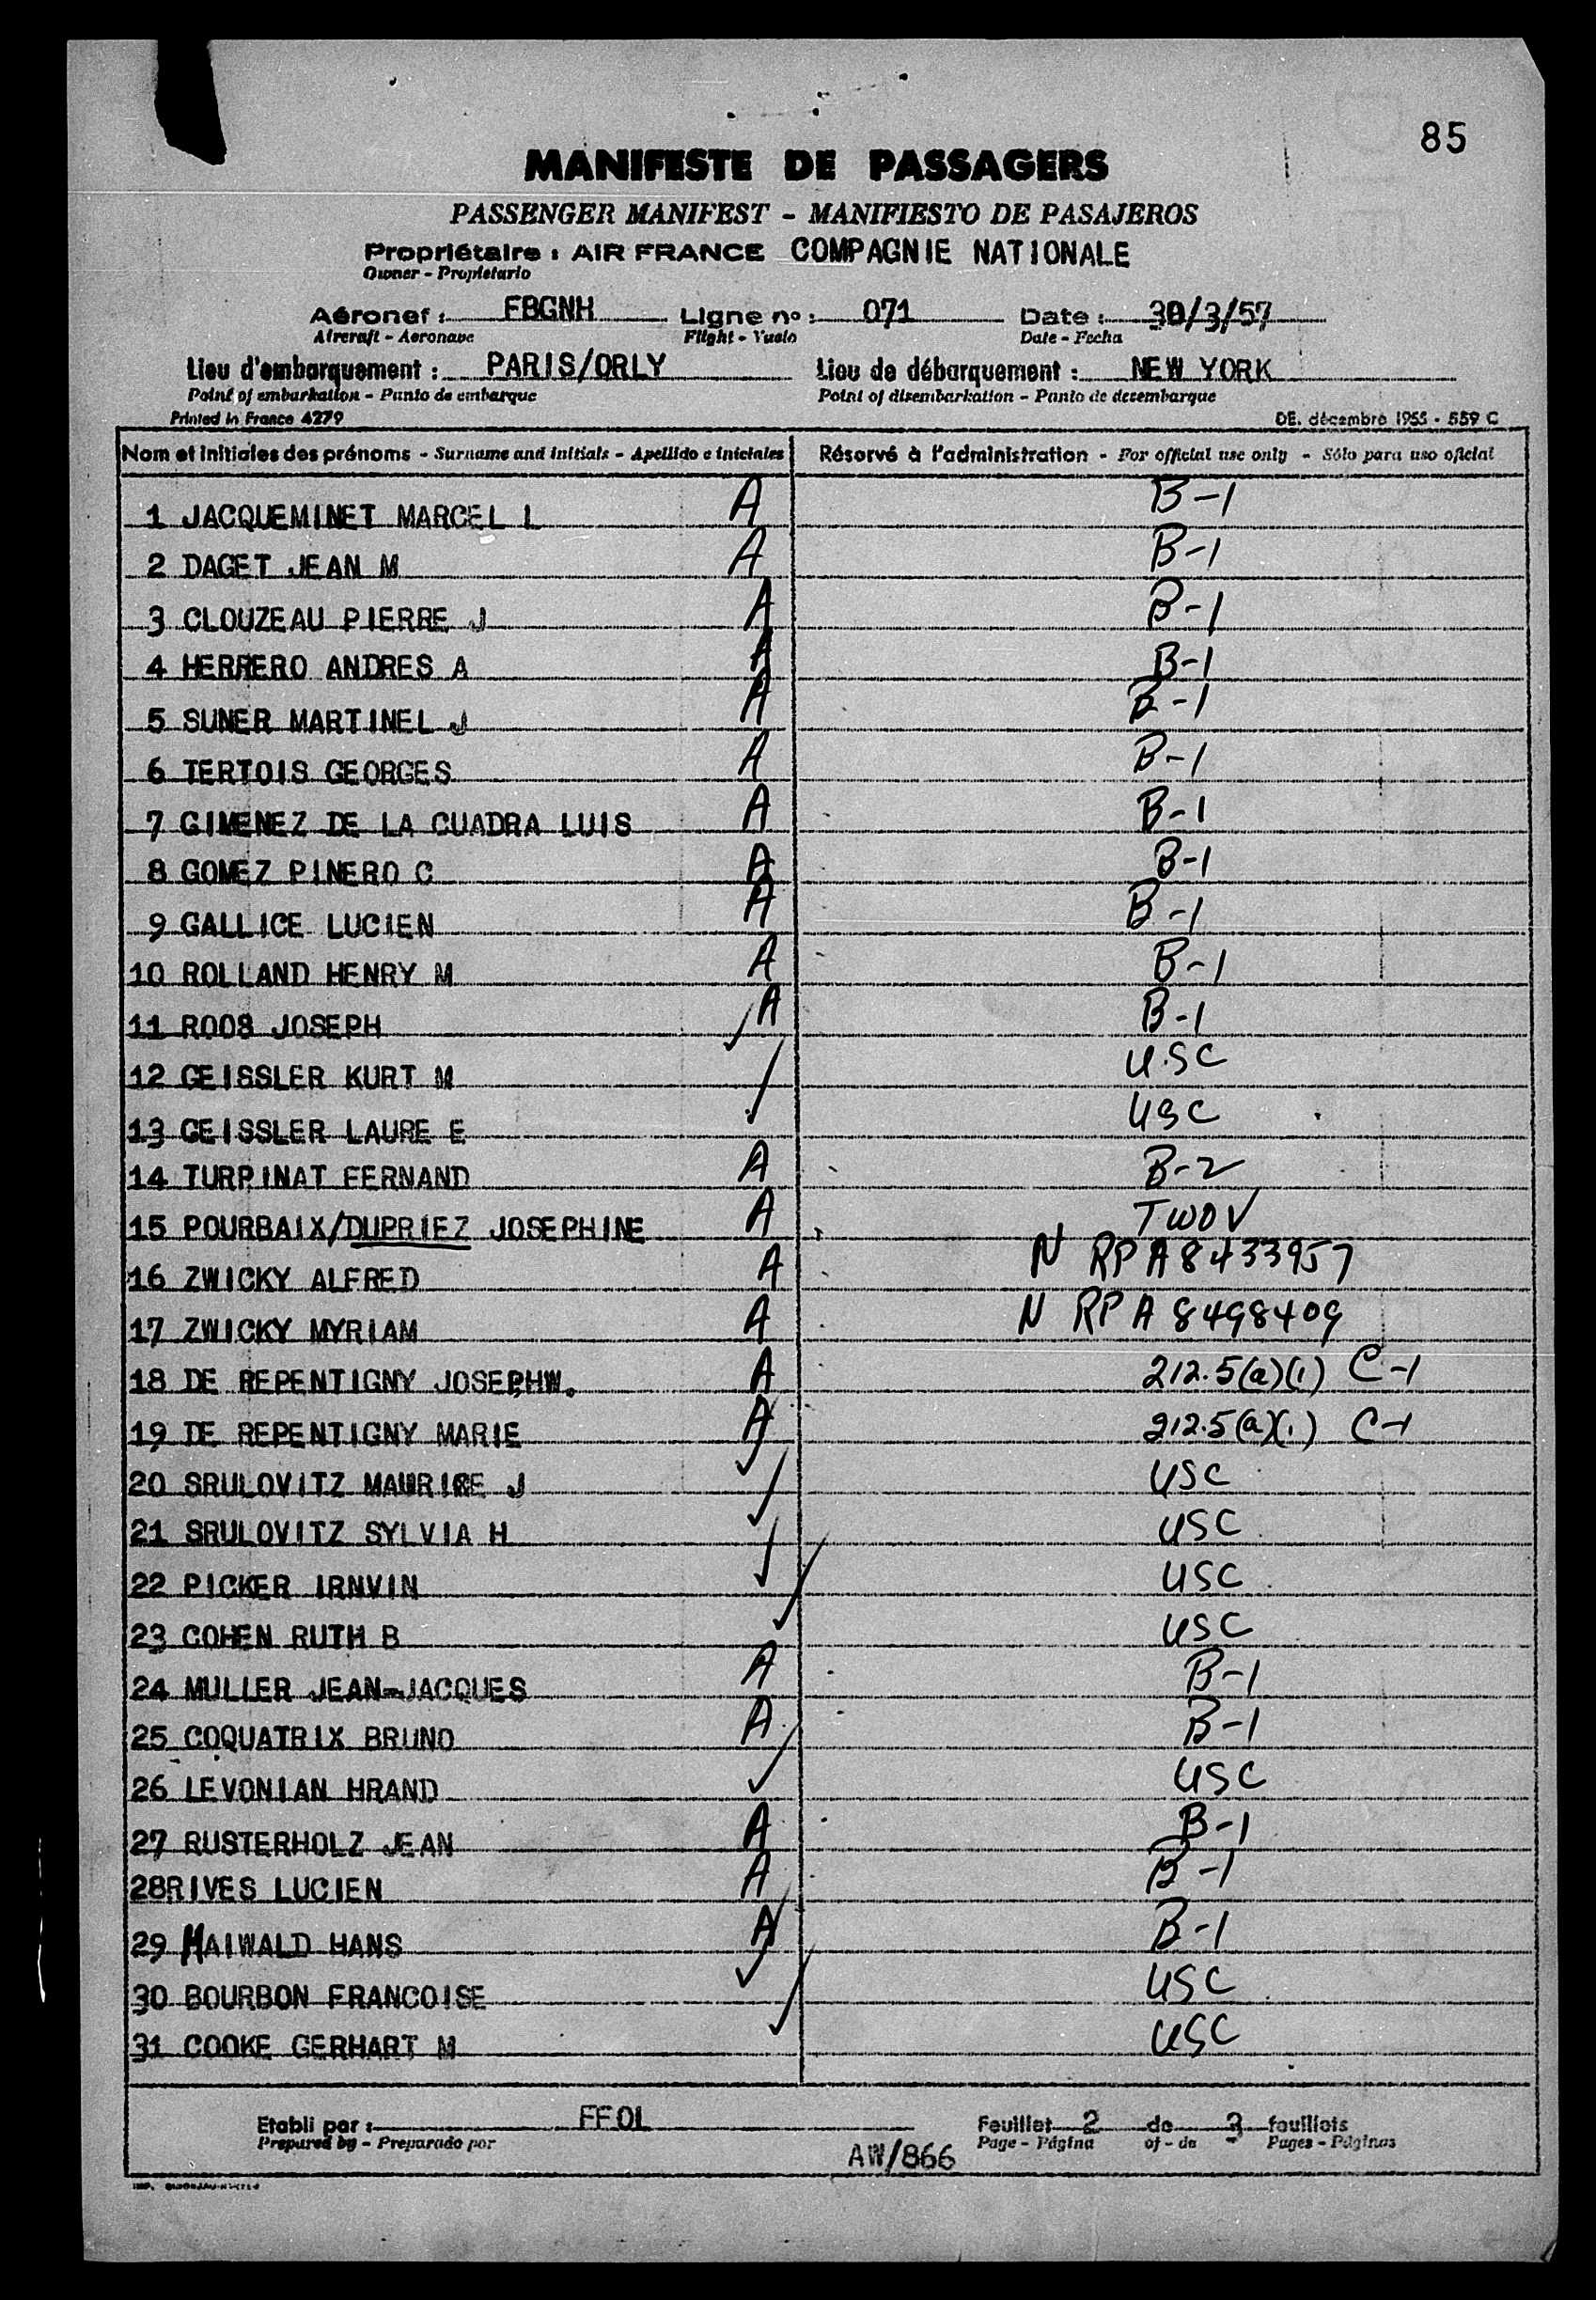 85
MANIFESTE DE PASSAGERS
PASSENGER MANIFEST - MANIFIESTO DE PASAJEROS
Propriétaire : AIR FRANCE COMPAGNIE NATIONALE
Owner - Propietario
Aéronef : FBGNH Ligne no : 071 Date : 30/3/57
Aircraft - Aeronave Flight - Vuelo Date - Fecha
Lieu d'embarquement : PARIS/ORLY Lieu de débarquement : NEW YORK
Point of embarkation - Punto de embarque Point of disembarkation - Punto de desembarque
Printed in France 4279 DE. décembre 1955 - 559 C
Nom et initiales des prénoms - Surname and initials - Apellido e iniciales Réservé à l'administration - For official use only - Sólo para uso oficial
1 JACQUEMINET MARCEL L A B-1
2 DAGET JEAN M A B-1
3 CLOUZEAU PIERRE J A B-1
4 HERRERO ANDRES A A B-1
5 SUNER MARTINEL J A B-1
6 TERTOIS GEORGES A B-1
7 GIMENEZ DE LA CUADRA LUIS A B-1
8 GOMEZ PINERO C A B-1
9 GALLICE LUCIEN A B-1
10 ROLLAND HENRY M A B-1
11 ROOS JOSEPH A B-1
12 GEISSLER KURT M ✓ U.SC
13 GEISSLER LAURE E ✓ USC
14 TURPINAT FERNAND A B-2
15 POURBAIX/DUPRIEZ JOSEPHINE A TWOV
16 ZWICKY ALFRED A N RP A8433957
17 ZWICKY MYRIAM A N RP A 8498409
18 DE REPENTIGNY JOSEPHW. A 212.5(a)(1) C-1
19 DE REPENTIGNY MARIE A 212.5(a)(1) C-1
20 SRULOVITZ MAURICE J ✓ USC
21 SRULOVITZ SYLVIA H ✓ USC
22 PICKER IRNVIN ✓ USC
23 COHEN RUTH B ✓ USC
24 MULLER JEAN-JACQUES A B-1
25 COQUATRIX BRUNO A B-1
26 LEVONIAN HRAND ✓ USC
27 RUSTERHOLZ JEAN A B-1
28RIVES LUCIEN A B-1
29 MAIWALD HANS A B-1
30 BOURBON FRANCOISE ✓ USC
31 COOKE GERHART M ✓ USC
Etabli par : FFOL Feuillet 2 de 3 feuillets
Prepared by - Preparado por Page - Página of - de Pages - Páginas
AW/866